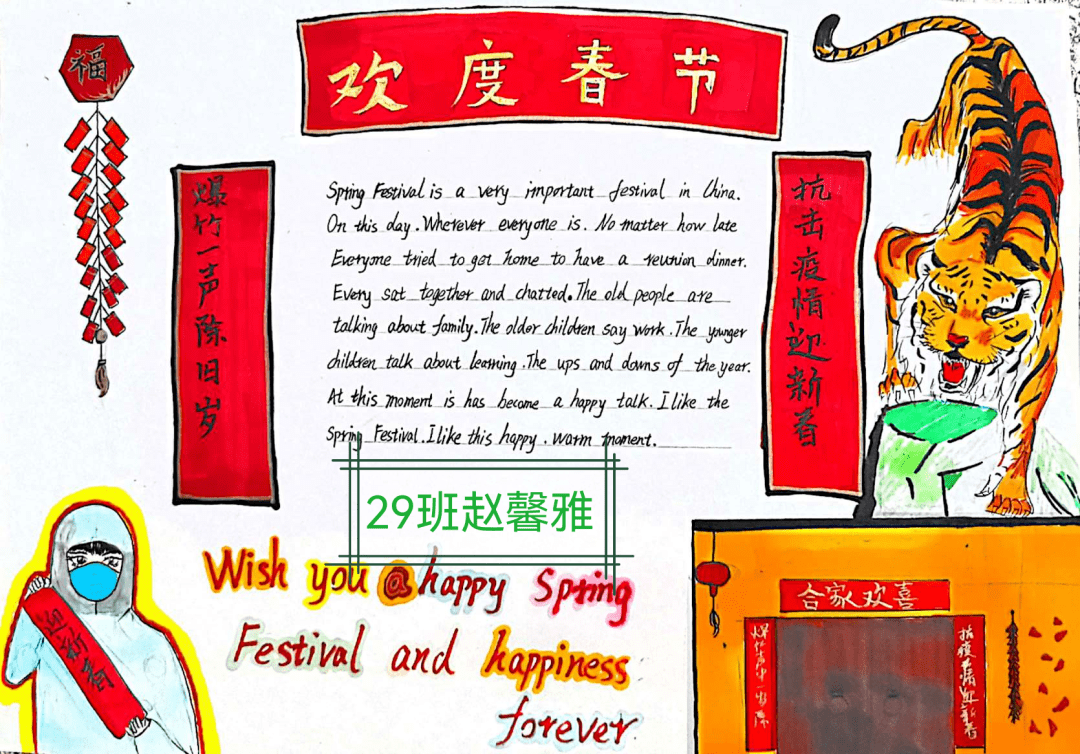 欢度春节
福
爆竹一声除旧岁
抗击疫情迎新春
Spring Festival is a very important festival in China.
On this day. Wherever everyone is. No matter how late
Everyone tried to get home to have a reunion dinner.
Every sat together and chatted. The old people are
talking about family. The older children say work. The younger
children talk about learning. The ups and downs of the year.
At this moment is has become a happy talk. I like the
Spring Festival. I like this happy. warm moment.
29班赵馨雅
Wish you a happy Spring
Festival and happiness
forever
迎新春
合家欢喜